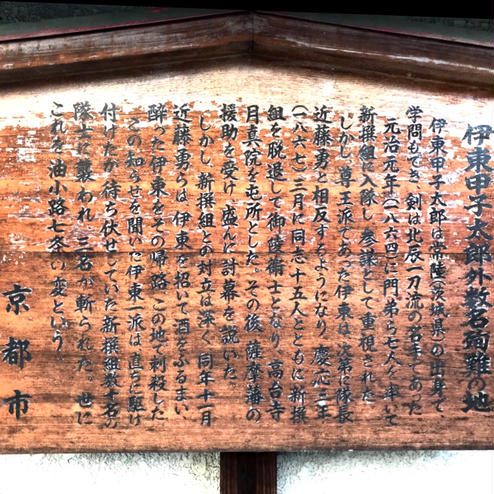 伊東甲子太郎外数名殉難の地
伊東甲子太郎は常陸(茨城県)の出身で
学問もでき、剣は北辰一刀流の名手であった
元治元年(一八六四)に門弟ら七人を率いて
新撰組に入隊し、参謀として重視された。
しかし、尊王派であった伊東は、次第に隊長
近藤勇と相反すようになり、慶応三年
(一八六七)三月に同志十五人とともに新撰
組を脱退して御陵衛士となり、高台寺
月真院を屯所とした。その後、薩摩藩の
援助を受け、盛んに討幕を説いた。
しかし、新撰組との対立は深く、同年十一月
近藤勇らは、伊東を招いて酒をふるまい、
酔った伊東をその帰路、この地で刺殺した
この知らせを聞いた伊東一派は、直ちに駆け
付けたが、待ち伏せていた新撰組数十名の
隊士に襲われ、三名が斬られた。世に
これを「油小路七条の変」という。
京都市